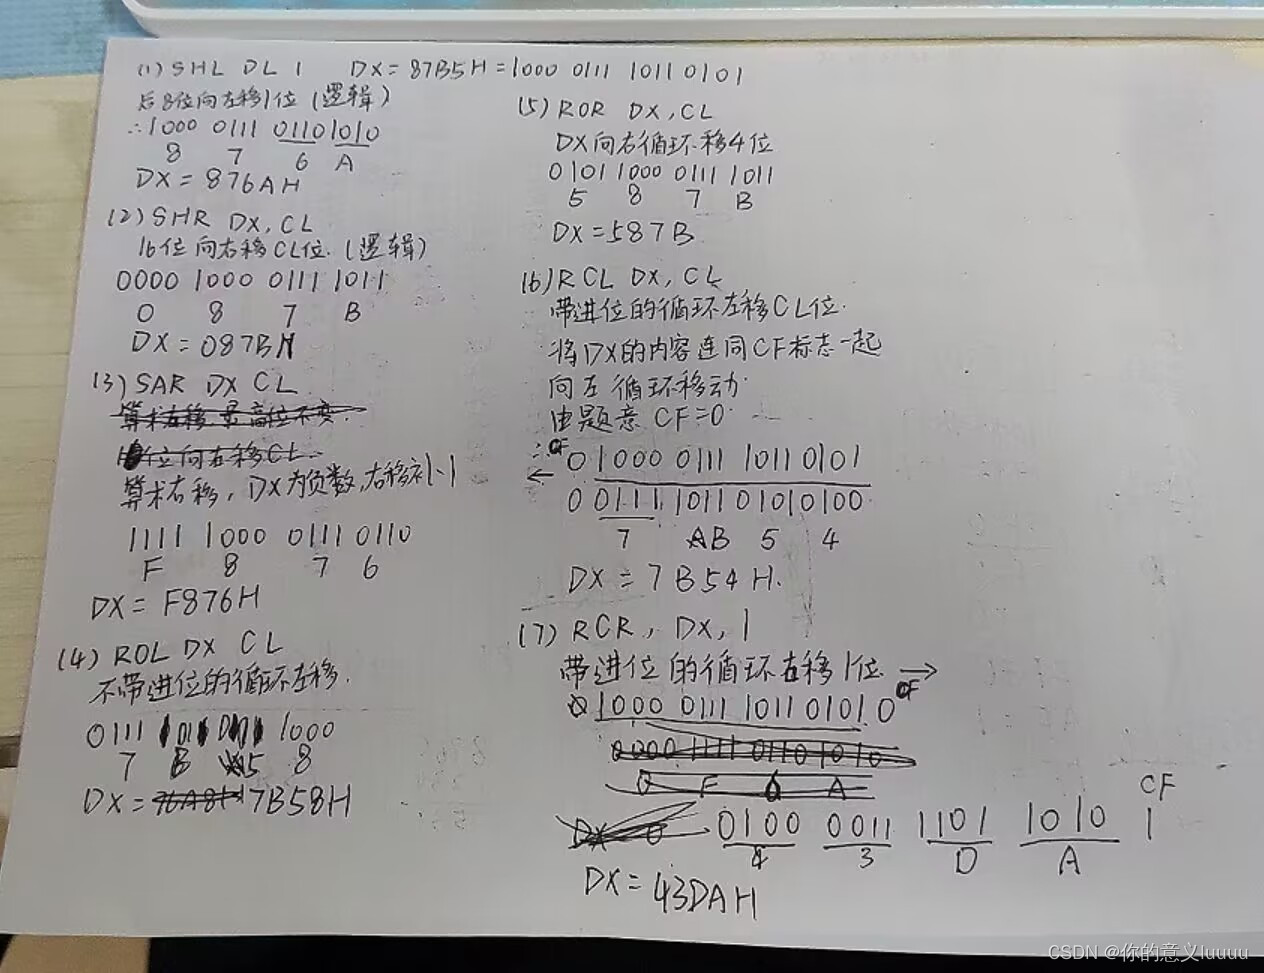 (1) SHL DL 1 DX = 87B5H = 1000 0111 1011 0101
后8位向左移1位 (逻辑)
∴1000 0111 0110 1010
8 7 6 A
DX = 876AH
(2) SHR DX, CL
16位向右移CL位. (逻辑)
0000 1000 0111 1011
0 8 7 B
DX = 087BH
(3) SAR DX CL
算术右移 最高位不变.
位向右移CL.
算术右移, DX为负数,右移补1
1111 1000 0111 0110
F 8 7 6
DX = F876H
(4) ROL DX CL
不带进位的循环左移.
0111 1011 0101 1000
7 B 5 8
DX = 76A8H 7B58H
(5) ROR DX, CL
DX向右循环移4位
0101 1000 0111 1011
5 8 7 B
DX = 587B
(6) RCL DX, CL
带进位的循环左移CL位.
将DX的内容连同CF标志一起
向左循环移动.
由题意 CF=0.
∴ CF
← 0 1000 0111 1011 0101
0 0111 1011 0101 0100
7 AB 5 4
DX = 7B54H.
(7) RCR, DX, 1
带进位的循环右移1位 →
CF
0 1000 0111 1011 0101 0
0000 1111 0110 1010
0 F 6 A
CF
DX 0 0100 0011 1101 1010 1
4 3 D A
DX = 43DAH
CSDN @你的意义luuuu